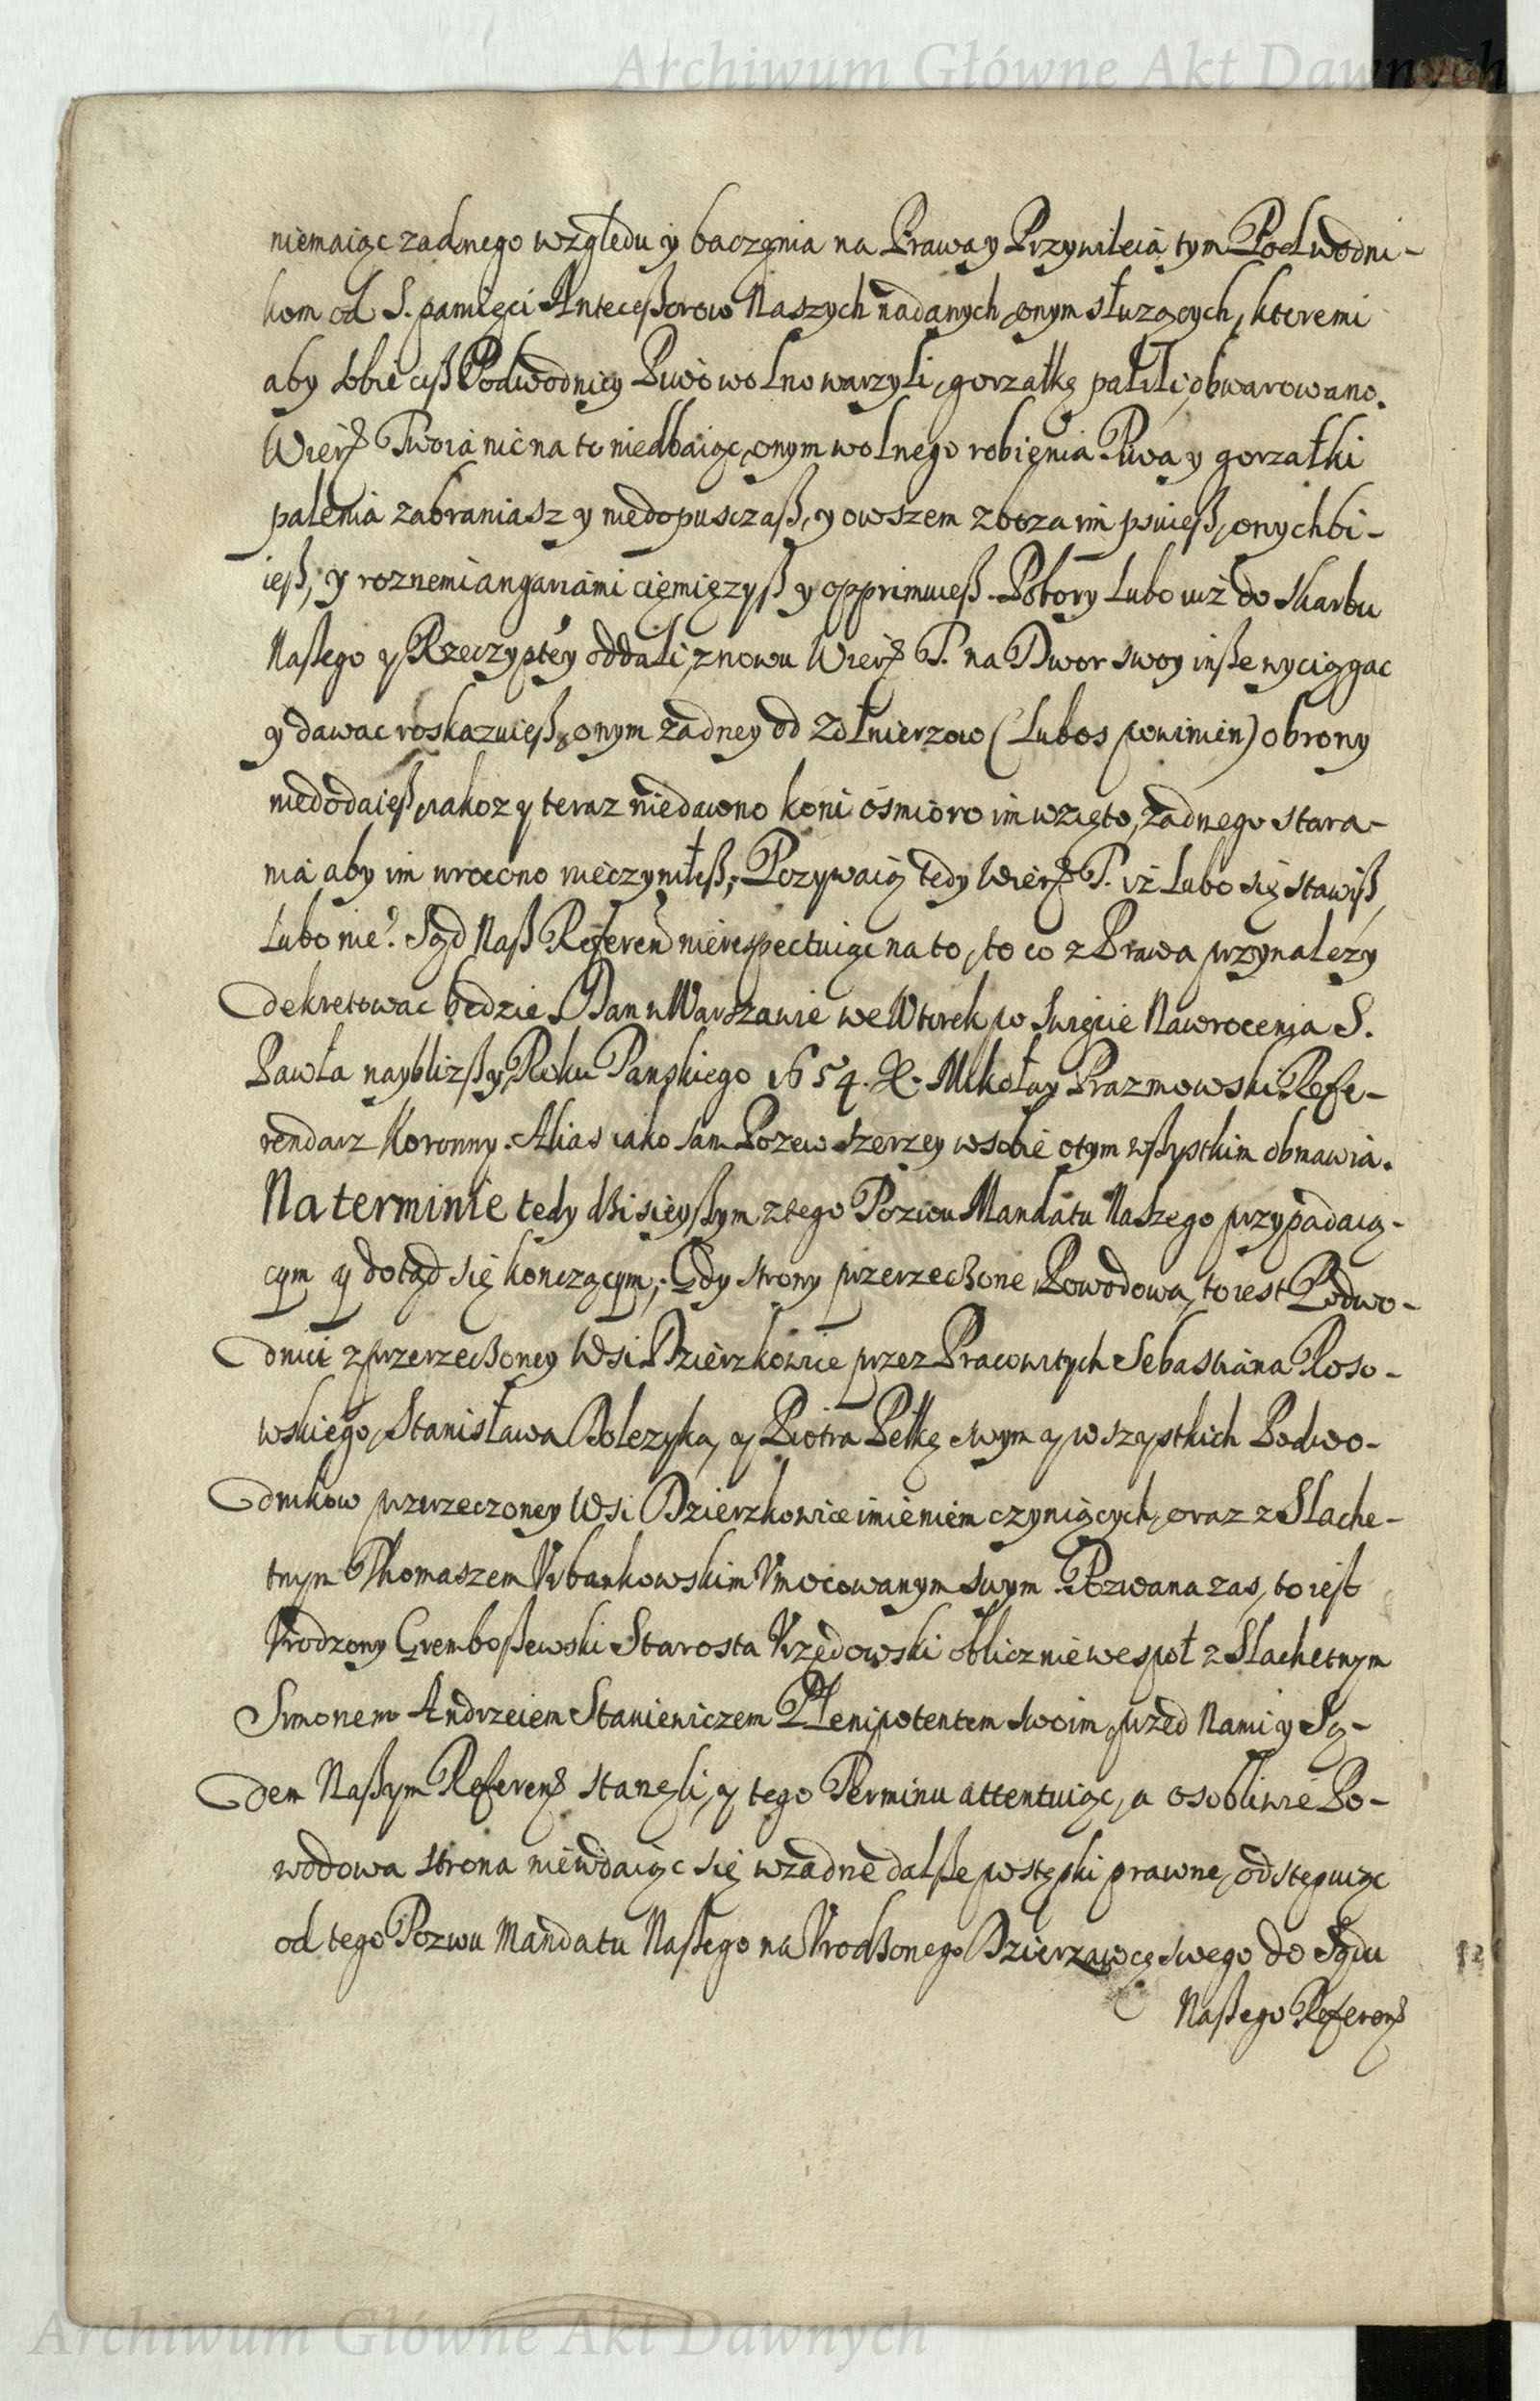 Archiwum Główne Akt Dawnych
niemaiąc zadnego względu y baczęnia na Prawa y Przywileia tym Podwodni-
kom od S. pamięci Antecessorow Naszych nadanych, onym służących, kteremi
aby sobie ciß Podwodnicy Piwo wolno warzyli, gorzałkę palili, obwarowano.
Wierz Twoia nic na to niedbaiąc, onym wolnego robięnia Piwa y gorzałki
palenia zabraniasz y niedopusczaß, y owszem zboza im psuieß, onych bi-
ieß, y roznemi angariami cięmięzyß y opprimuieß. Pobory Lubo iuż do Skarbu
Naßego y Rzeczyptey oddali, znowu Wierz T. na Dwor swoy inße wyciągac
y dawac roskazuieß, onym żadney od Zołnierzow (Lubos powinien) obrony
niedodaieß, iakoz y teraz niedawno koni ośmioro im wzięto, żadnego stara-
nia aby im wrocono nieczyniłeß; Pozywaią tedy Wierz T. iż Lubo się stawiß,
Lubo nie? Sąd Naß Referen nierespectuiąc na to, to co z Prawa przynależy
dekretowac będzie. Dan w Warszawie we Wtorek po Swięcie Nawrocenia S.
Pawła naybliżßy, Roku Panskiego 1654. X. Mikołay Prazmowski Refe-
rendarz Koronny. Alias iako sam Pozew szerzey w sobie o tym wßystkim obmawia.
Na terminie tedy dzisieyßym z tego Pozwu Mandatu Naszego przypadaią-
cym y dotąd się konczącym; Gdy strony przerzeczone Powodowa, to iest Podwo-
dnici z przerzeczoney Wsi Dzierzkowice przez Pracowitych Sebastiana Roso-
wskiego, Stanisława Bolezyka, y Piotra Pełkę swym y wszystkich Podwo-
dnikow przerzeczoney Wsi Dzierzkowice imieniem czyniących, oraz z Slache-
tnym Thomaszem Vrbankowskim Vmocowanym swym. Pozwana zas, to iest
Vrodzony Gremboßewski Starosta Vrzędowski obliczniè wespoł z Slachetnym
Simonem Andrzeiem Stawieniczem Plenipotentem swoim, przed Nami y Są-
dem Naßym Referen stanęli, y tego Terminu attentuiąc, a osobliwie Po-
wodowa strona niewdaiąc się w żadne dalße postępki prawne, odstępuiąc
od tego Pozwu Mandatu Naßego na Vrodzonego Dzierzawcę swego do Sądu
Naßego Referen
Archiwum Główne Akt Dawnych